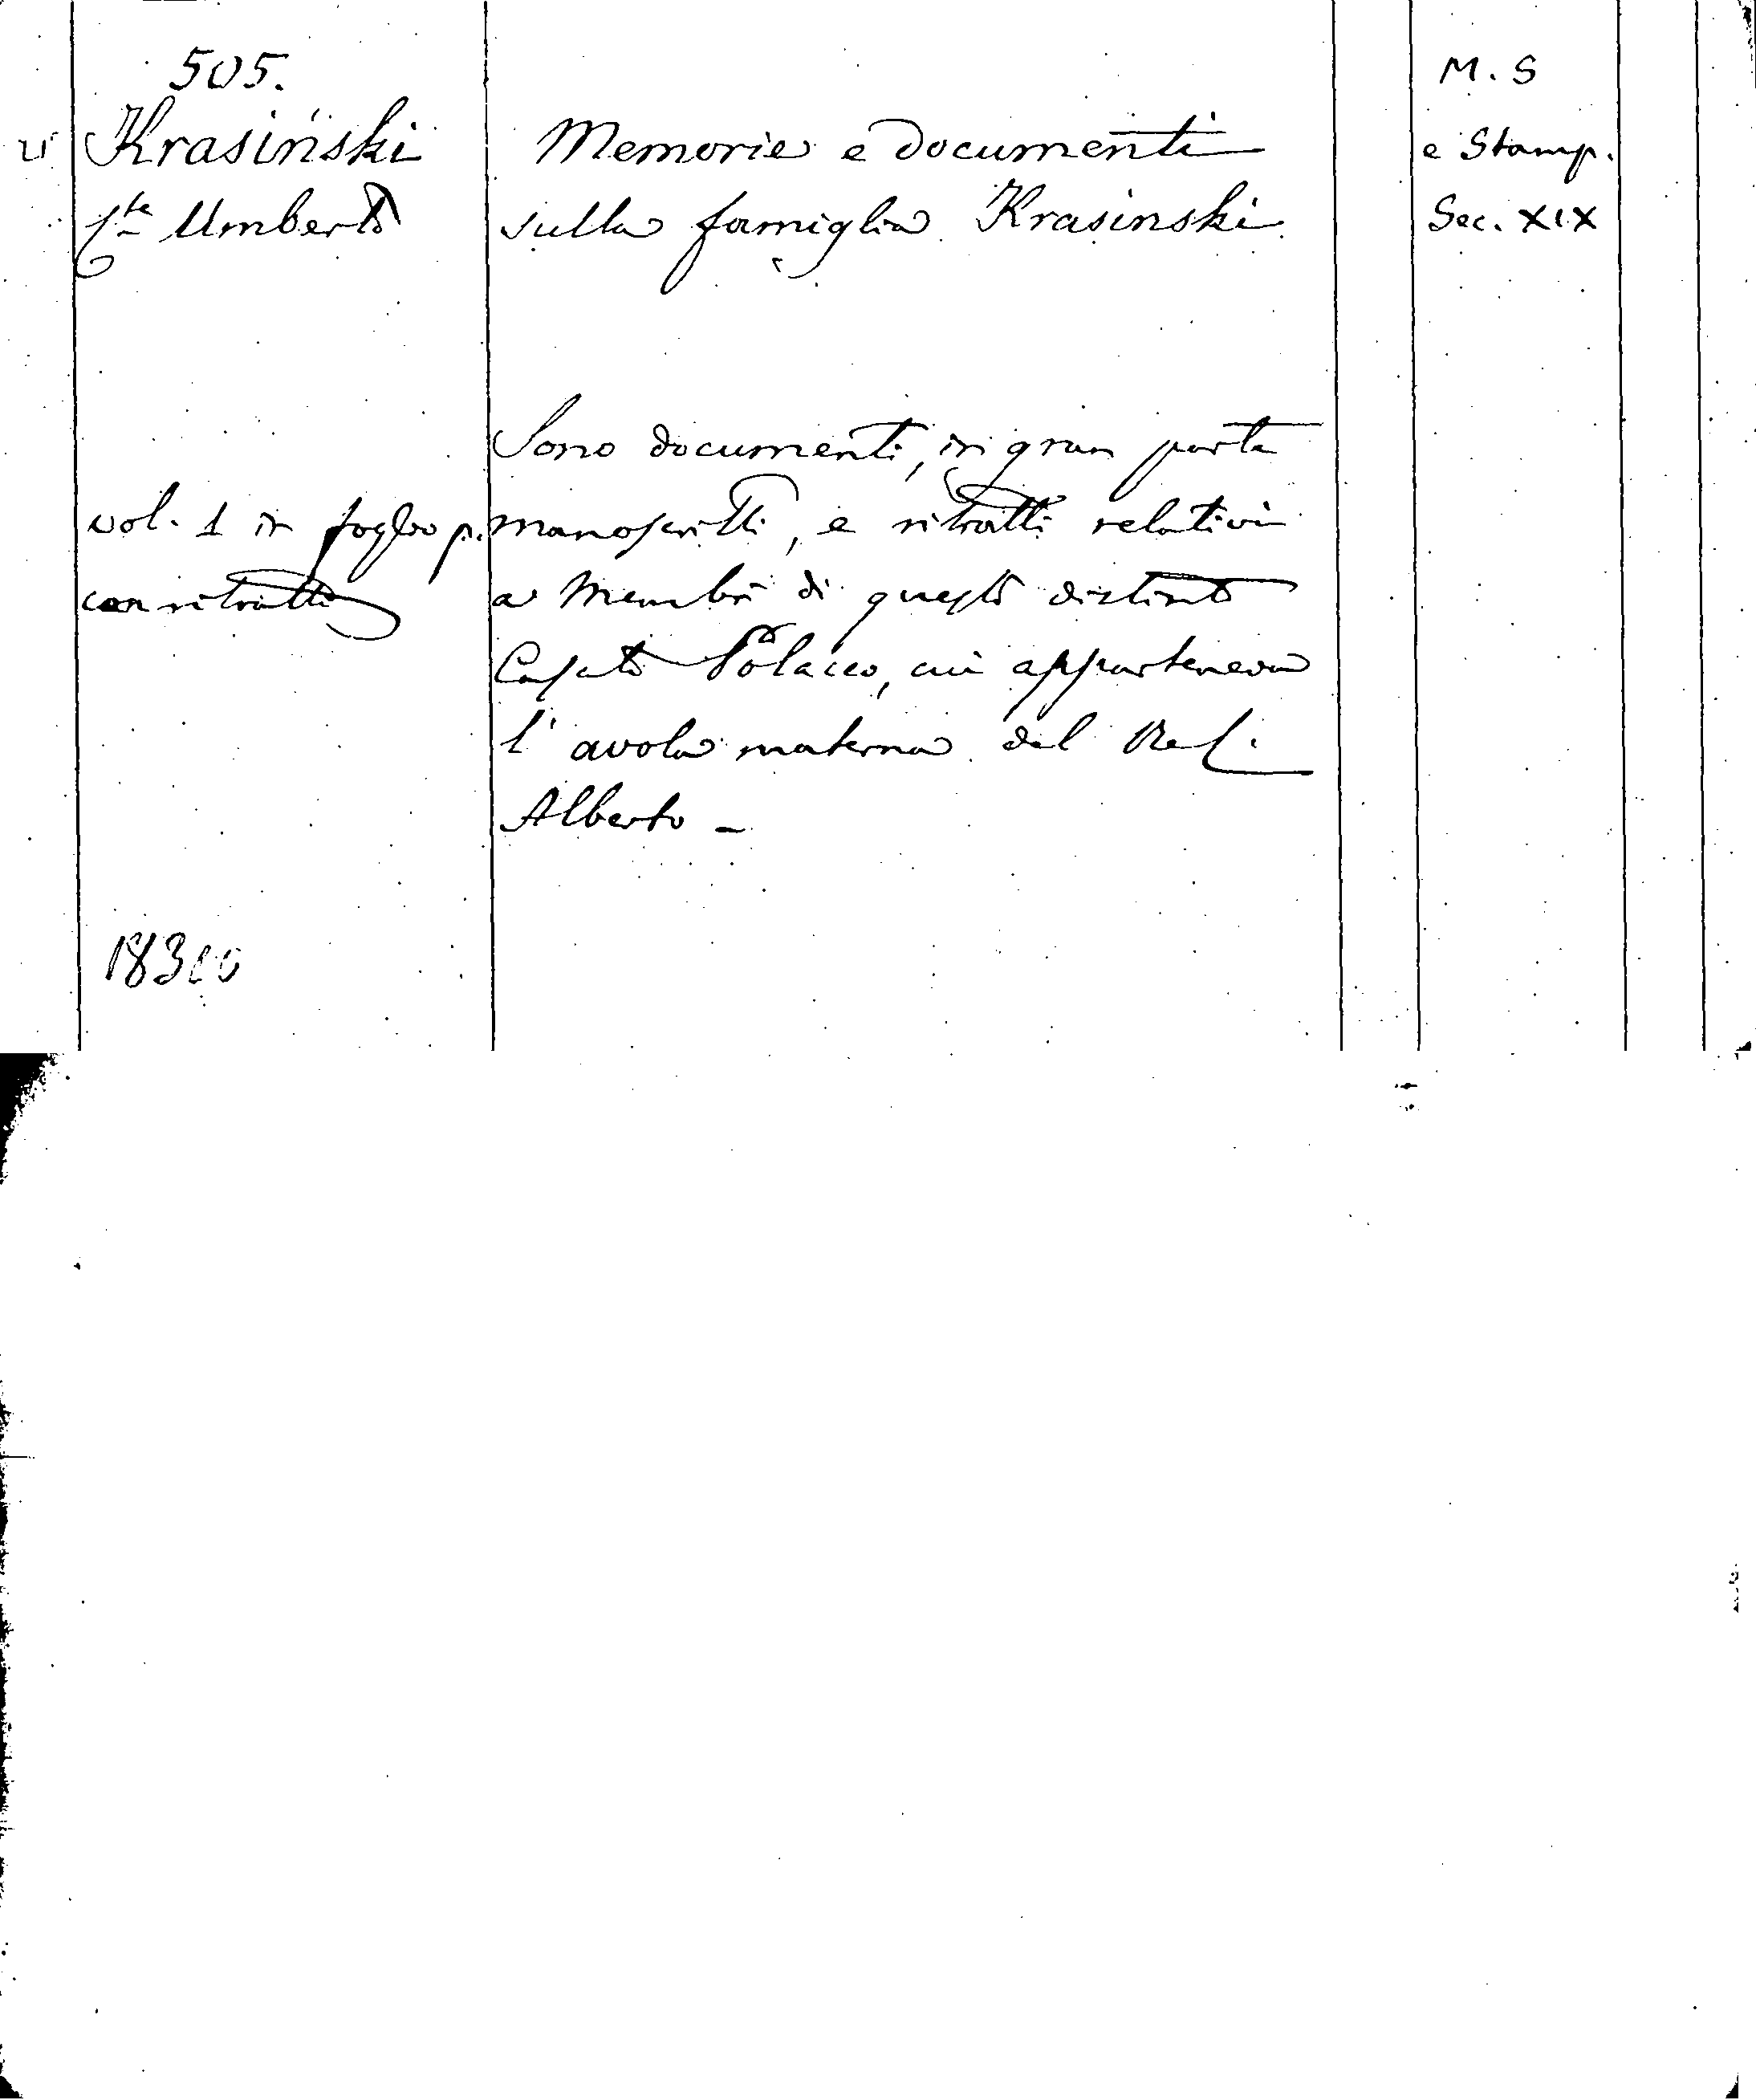 505.
Krasiński
Cte Umberto
Memorie e documenti
sulla famiglia Krasinski
M. S
e Stamp.
Sec. XIX
vol. 1 in foglio p.
con ritratti
Sono documenti, in gran parte
manoscritti, e ritratti relativi
a Membri di questo distinto
Casato Polacco, cui apparteneva
l'avola materna del Re C.
Alberto -